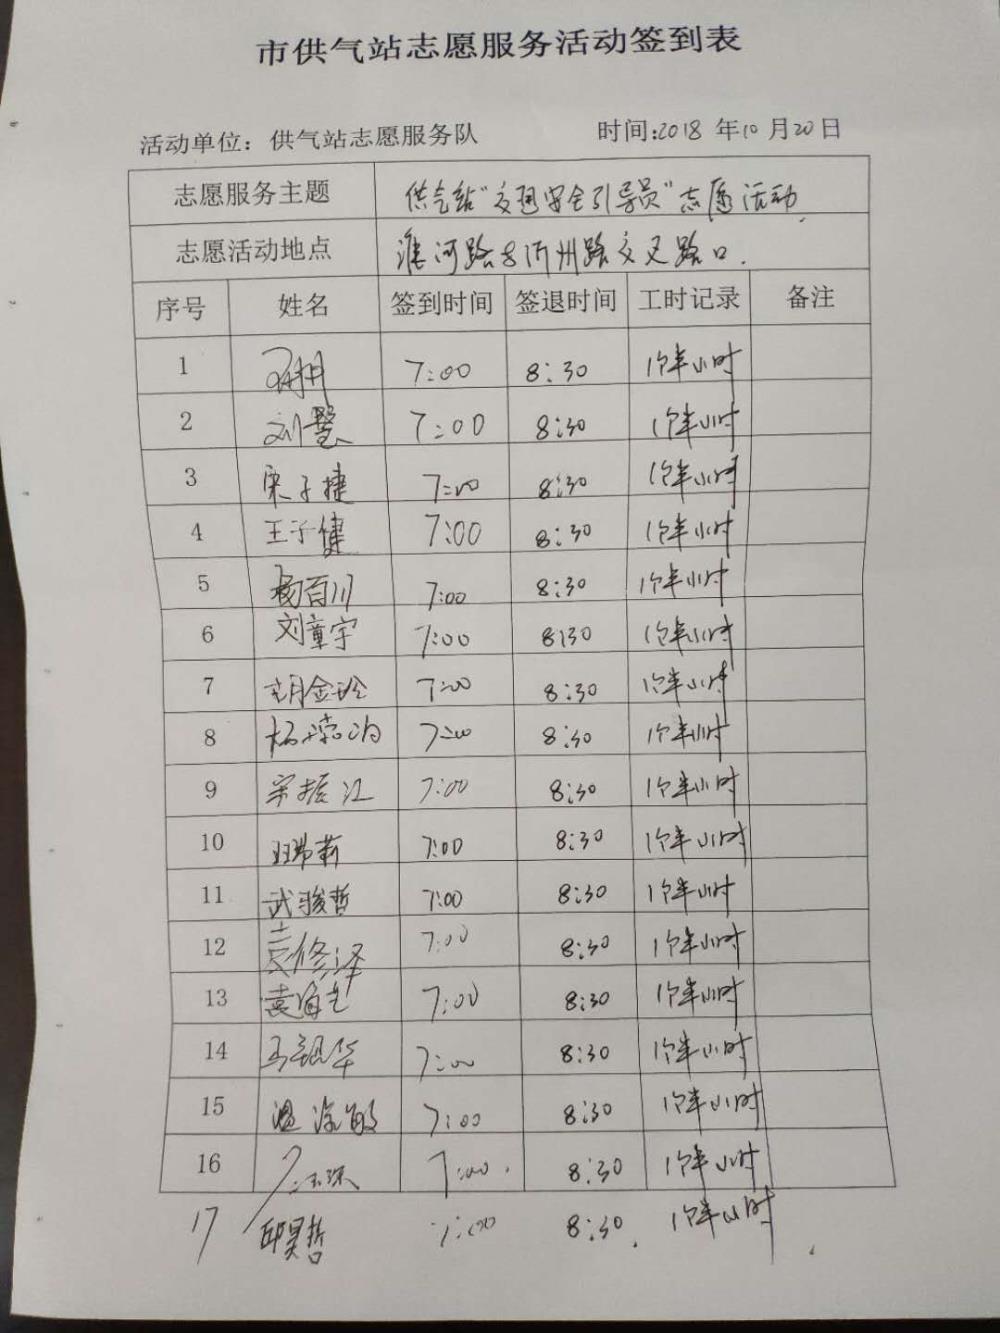 市供气站志愿服务活动签到表
活动单位：供气站志愿服务队 时间:2018 年10 月20日
志愿服务主题 供气站"交通安全引导员"志愿活动.
志愿活动地点 淮河路与沂州路交叉路口.
序号 姓名 签到时间 签退时间 工时记录 备注
1 7:00 8:30 1个半小时
2 刘慧 7:00 8:30 1个半小时
3 宋子捷 7:00 8:30 1个半小时
4 王子健 7:00 8:30 1个半小时
5 杨百川 7:00 8:30 1个半小时
6 刘童宇 7:00 8:30 1个半小时
7 胡金玲 7:00 8:30 1个半小时
8 7:00 8:30 1个半小时
9 宋振江 7:00 8:30 1个半小时
10 7:00 8:30 1个半小时
11 武骏哲 7:00 8:30 1个半小时
12 袁修泽 7:00 8:30 1个半小时
13 7:00 8:30 1个半小时
14 7:00 8:30 1个半小时
15 7:00 8:30 1个半小时
16 7:00. 8:30 1个半小时
17 邱昊哲 7:00 8:30. 1个半小时